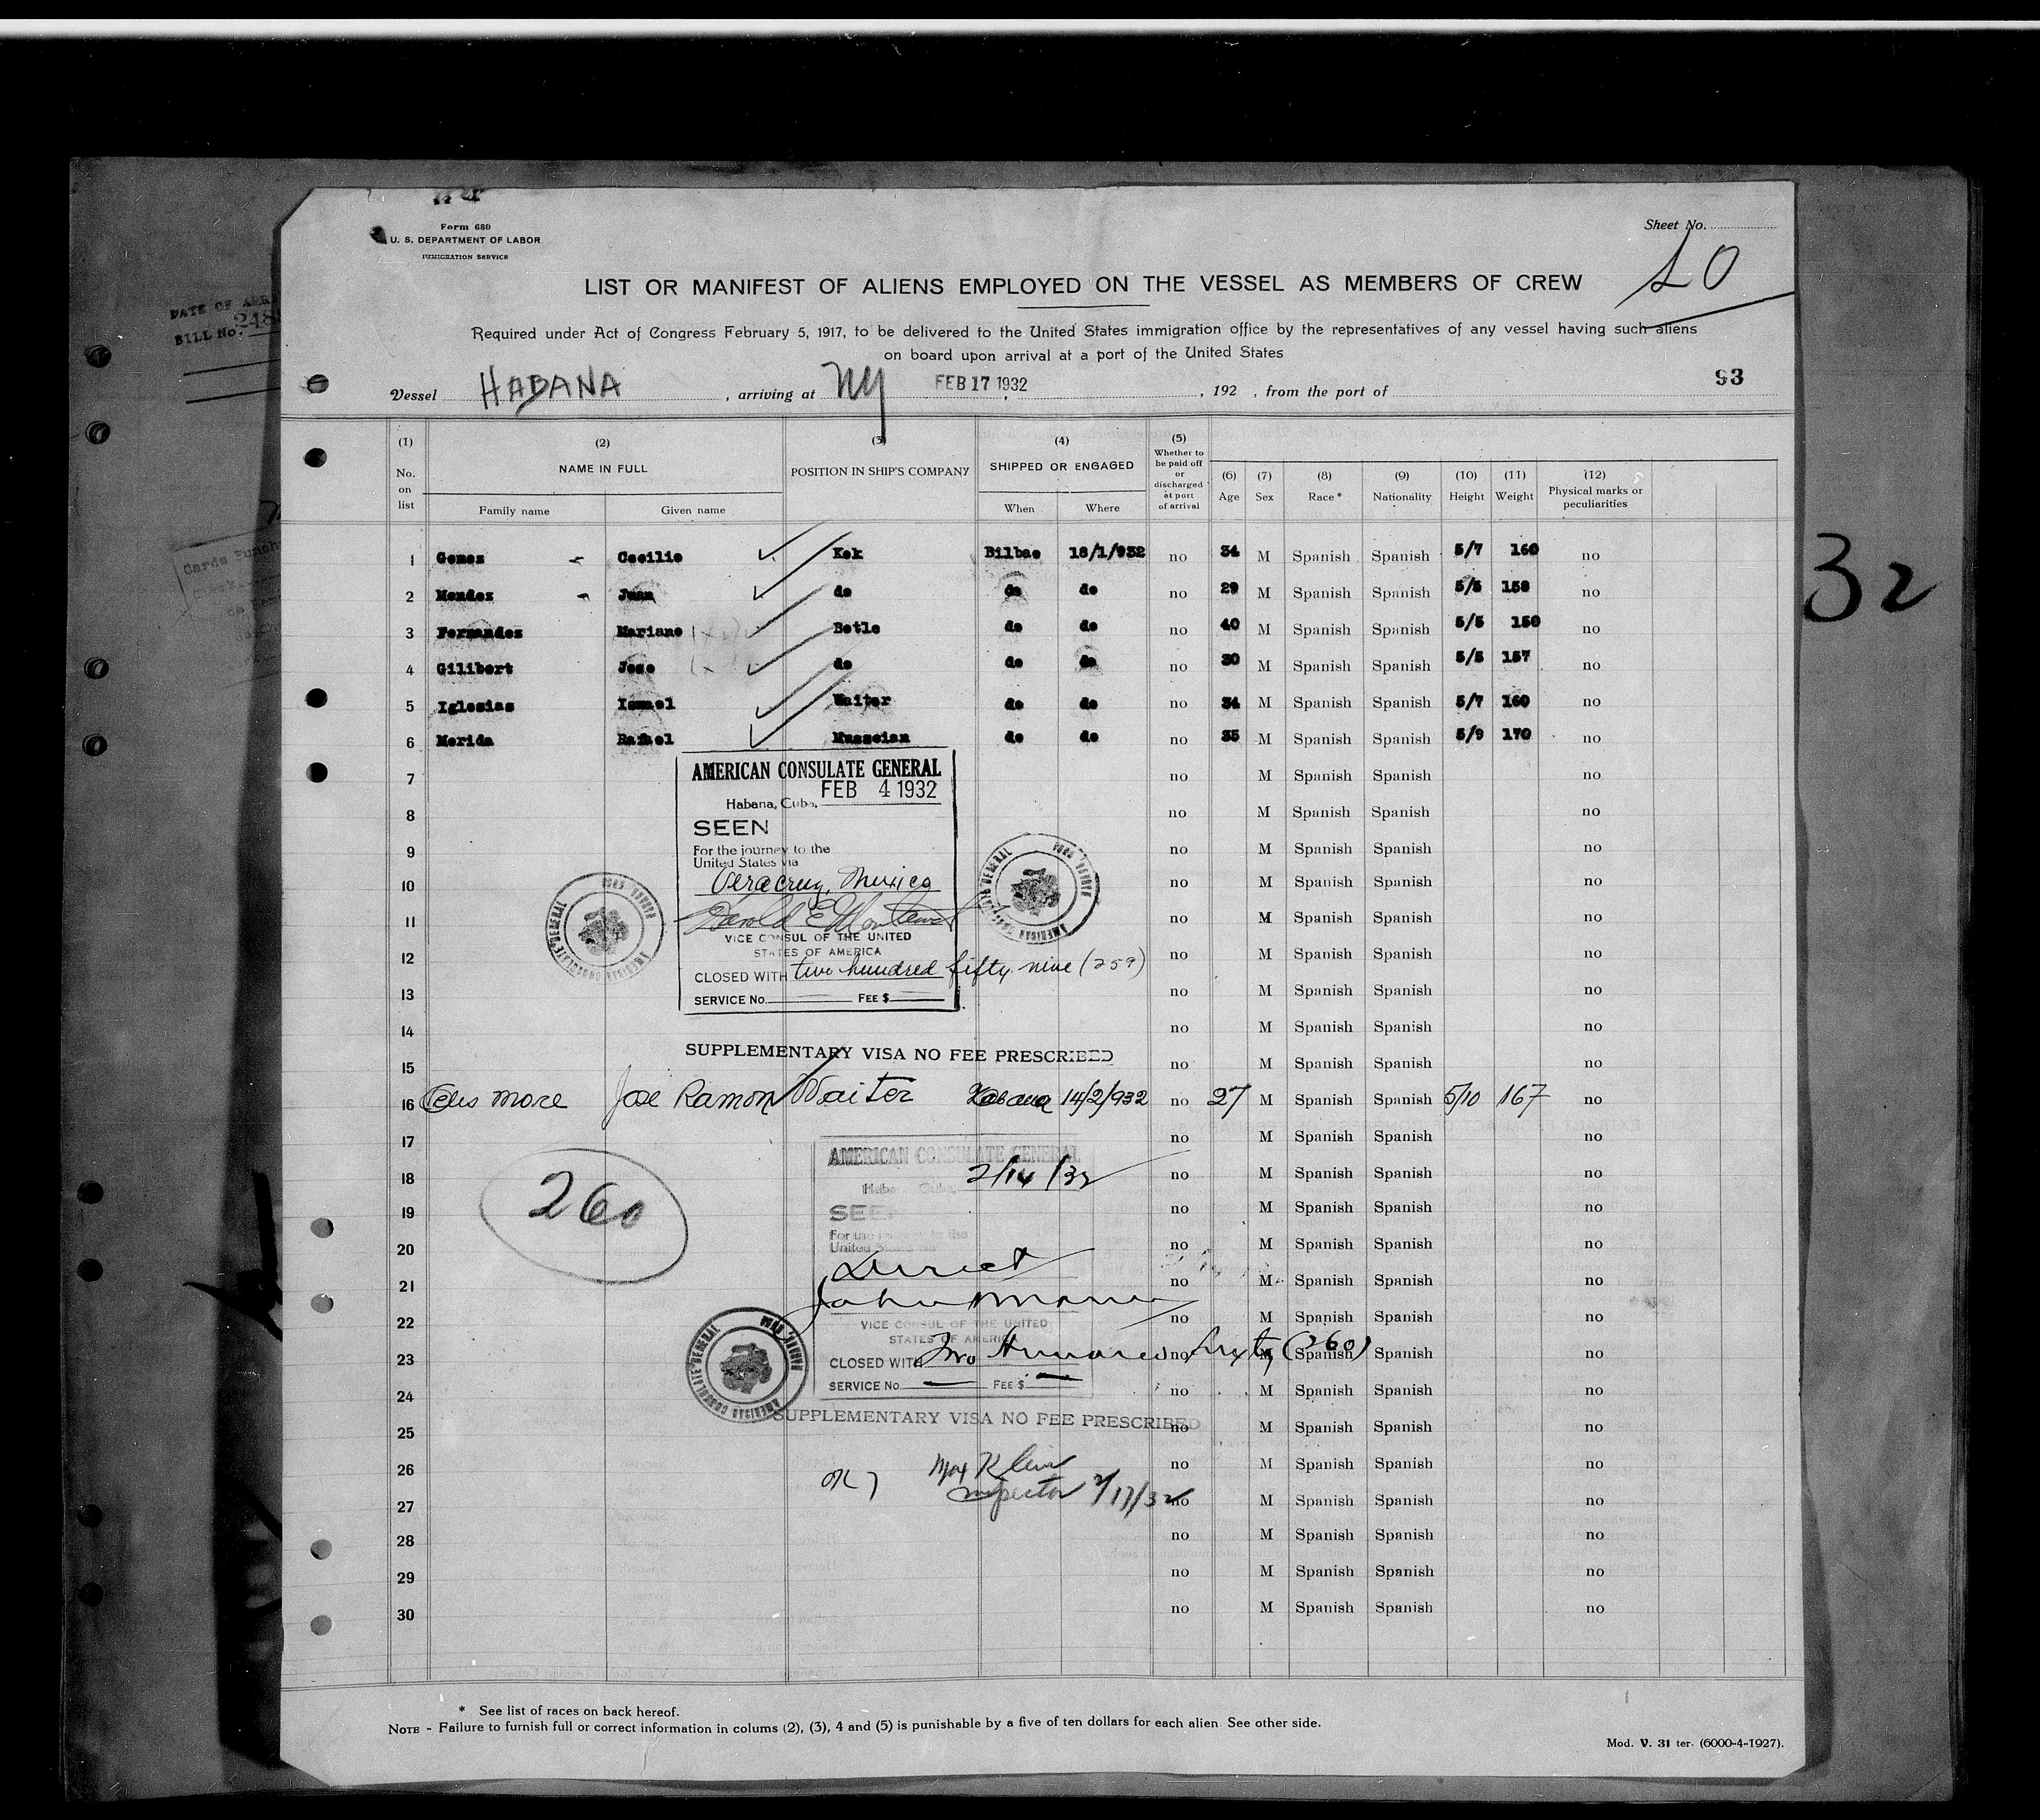 Form 680
U. S. DEPARTMENT OF LABOR
IMMIGRATION SERVICE
Sheet No.
LIST OR MANIFEST OF ALIENS EMPLOYED ON THE VESSEL AS MEMBERS OF CREW
Required under Act of Congress February 5, 1917, to be delivered to the United States immigration office by the representatives of any vessel having such aliens
on board upon arrival at a port of the United States
93
Vessel HABANA , arriving at NY FEB 17 1932 , 192 , from the port of
DATE OF
BILL No. 248
32
(1) No. on list (2) NAME IN FULL Family name Given name (3) POSITION IN SHIP'S COMPANY (4) SHIPPED OR ENGAGED When Where (5) Whether to be paid off or discharged at port of arrival (6) Age (7) Sex (8) Race * (9) Nationality (10) Height (11) Weight (12) Physical marks or peculiarities
1 Gomez - Cecilio Kok Bilbao 18/1/932 no 34 M Spanish Spanish 5/7 160 no
2 Mendez - Juan do do do no 29 M Spanish Spanish 5/5 158 no
3 Fernandez Mariano Botle do do no 40 M Spanish Spanish 5/5 150 no
4 Gilibert Jose do do do no 30 M Spanish Spanish 5/5 157 no
5 Iglesias Ismael Waiter do do no 34 M Spanish Spanish 5/7 160 no
6 Merida Rafael Musscian do do no 35 M Spanish Spanish 5/9 170 no
7 no M Spanish Spanish no
8 no M Spanish Spanish no
9 no M Spanish Spanish no
10 no M Spanish Spanish no
11 no M Spanish Spanish no
12 no M Spanish Spanish no
13 no M Spanish Spanish no
14 no M Spanish Spanish no
15 no M Spanish Spanish no
AMERICAN CONSULATE GENERAL
FEB 4 1932
Habana, Cuba,
SEEN
For the journey to the
United States via
Veracruz, Mexico
Harold E
VICE CONSUL OF THE UNITED
STATES OF AMERICA
CLOSED WITH two hundred fifty nine (259)
SERVICE No. FEE $
AMERICAN CONSULATE GENERAL
AMERICAN CONSULATE GENERAL
SUPPLEMENTARY VISA NO FEE PRESCRIBED
16 more Jose Ramon Waiter Habana 14/2/932 no 27 M Spanish Spanish 5/10 167 no
17 no M Spanish Spanish no
18 no M Spanish Spanish no
19 no M Spanish Spanish no
20 no M Spanish Spanish no
21 no M Spanish Spanish no
22 no M Spanish Spanish no
23 no M Spanish Spanish no
24 no M Spanish Spanish no
25 no M Spanish Spanish no
26 no M Spanish Spanish no
27 no M Spanish Spanish no
28 no M Spanish Spanish no
29 no M Spanish Spanish no
30 no M Spanish Spanish no
260
AMERICAN CONSULATE GENERAL
2/14/32
SEE
For the
United States via
Direct
John
VICE CONSUL OF THE UNITED
STATES OF AMERICA
CLOSED WITH Two Hundred Sixty (260)
SERVICE No. FEE $
AMERICAN CONSULATE GENERAL
SUPPLEMENTARY VISA NO FEE PRESCRIBED
OK Max Klein
Inspector 2/17/32
* See list of races on back hereof.
NOTE - Failure to furnish full or correct information in colums (2), (3), 4 and (5) is punishable by a five of ten dollars for each alien See other side.
Mod. V. 31 ter. (6000-4-1927).